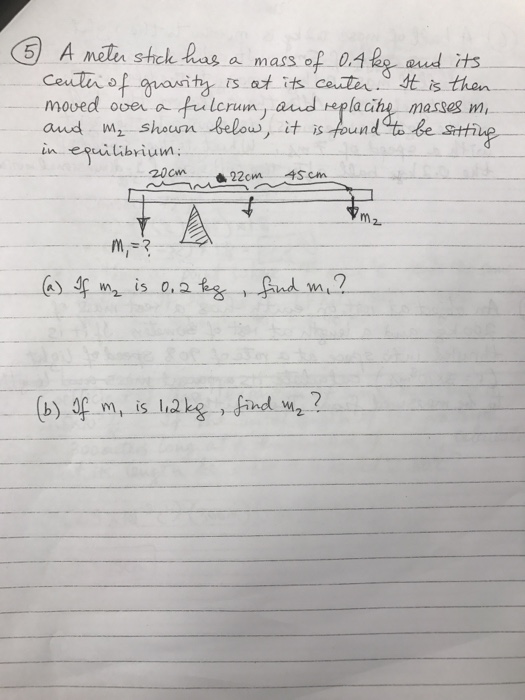 ⑤ A meter stick has a mass of 0.4 kg and its
center of gravity is at its center. It is then
moved over a fulcrum, and replacing masses m₁
and m₂ shown below, it is found to be sitting
in equilibrium:
20cm 22cm 45cm
m₁=? m₂
(a) If m₂ is 0.2 kg, find m₁?
(b) If m₁ is 1.2 kg, find m₂?